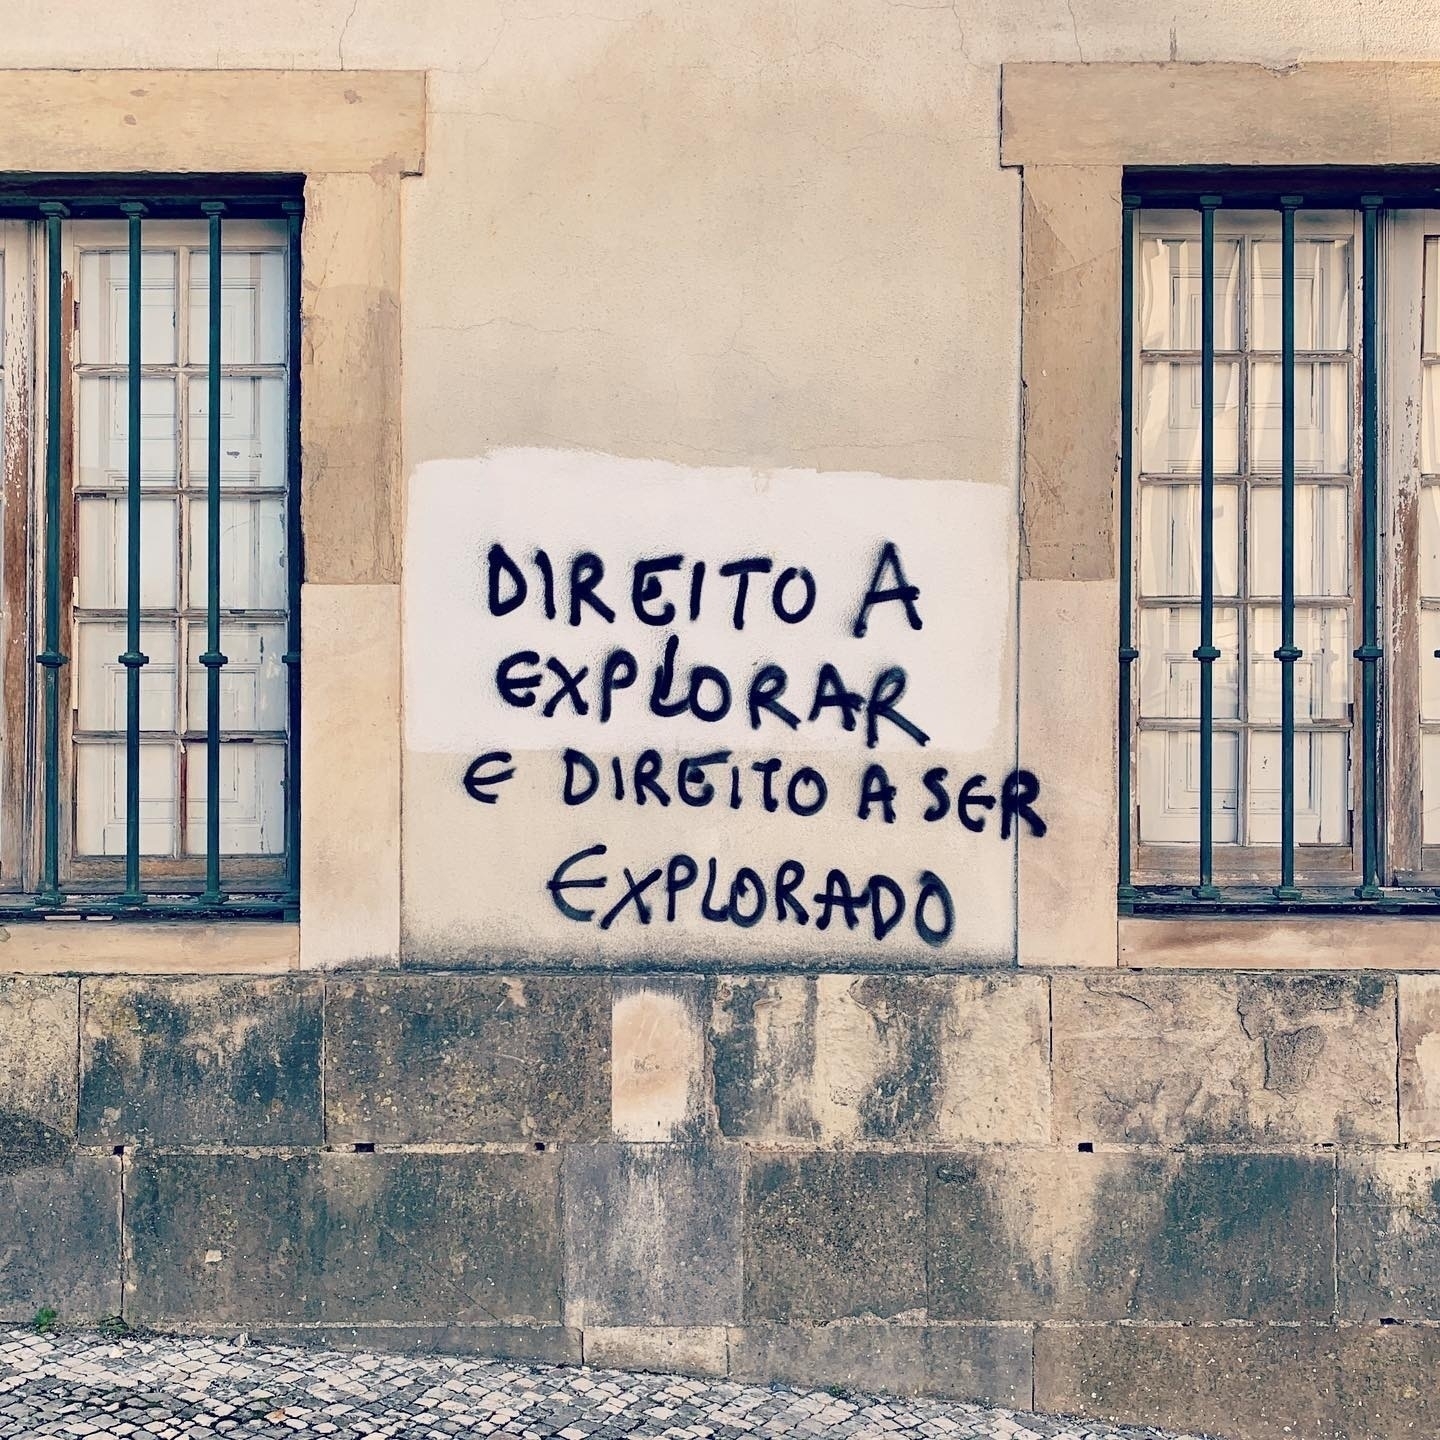 DIREITO A
EXPLORAR
E DIREITO A SER
EXPLORADO